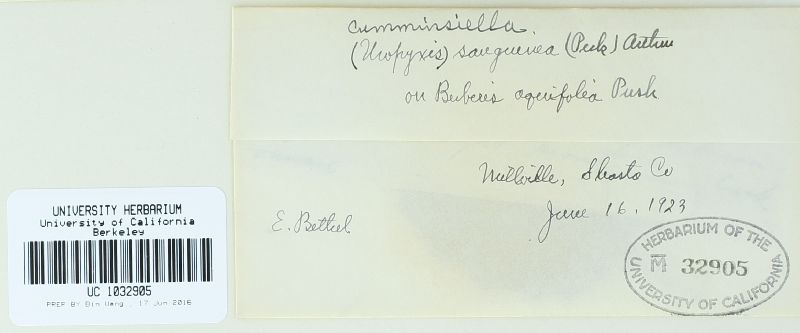 Cumminsiella.
(Uropyxis) sanguinea (Peck) Arthur
on Berberis aquifolia Pursh
Millville, Shasta Co
June 16, 1923
E. Bethel
HERBARIUM OF THE
M 32905
UNIVERSITY OF CALIFORNIA
UNIVERSITY HERBARIUM
University of California
Berkeley
UC 1032905
PREP BY Bin Wang , 17 Jun 2016